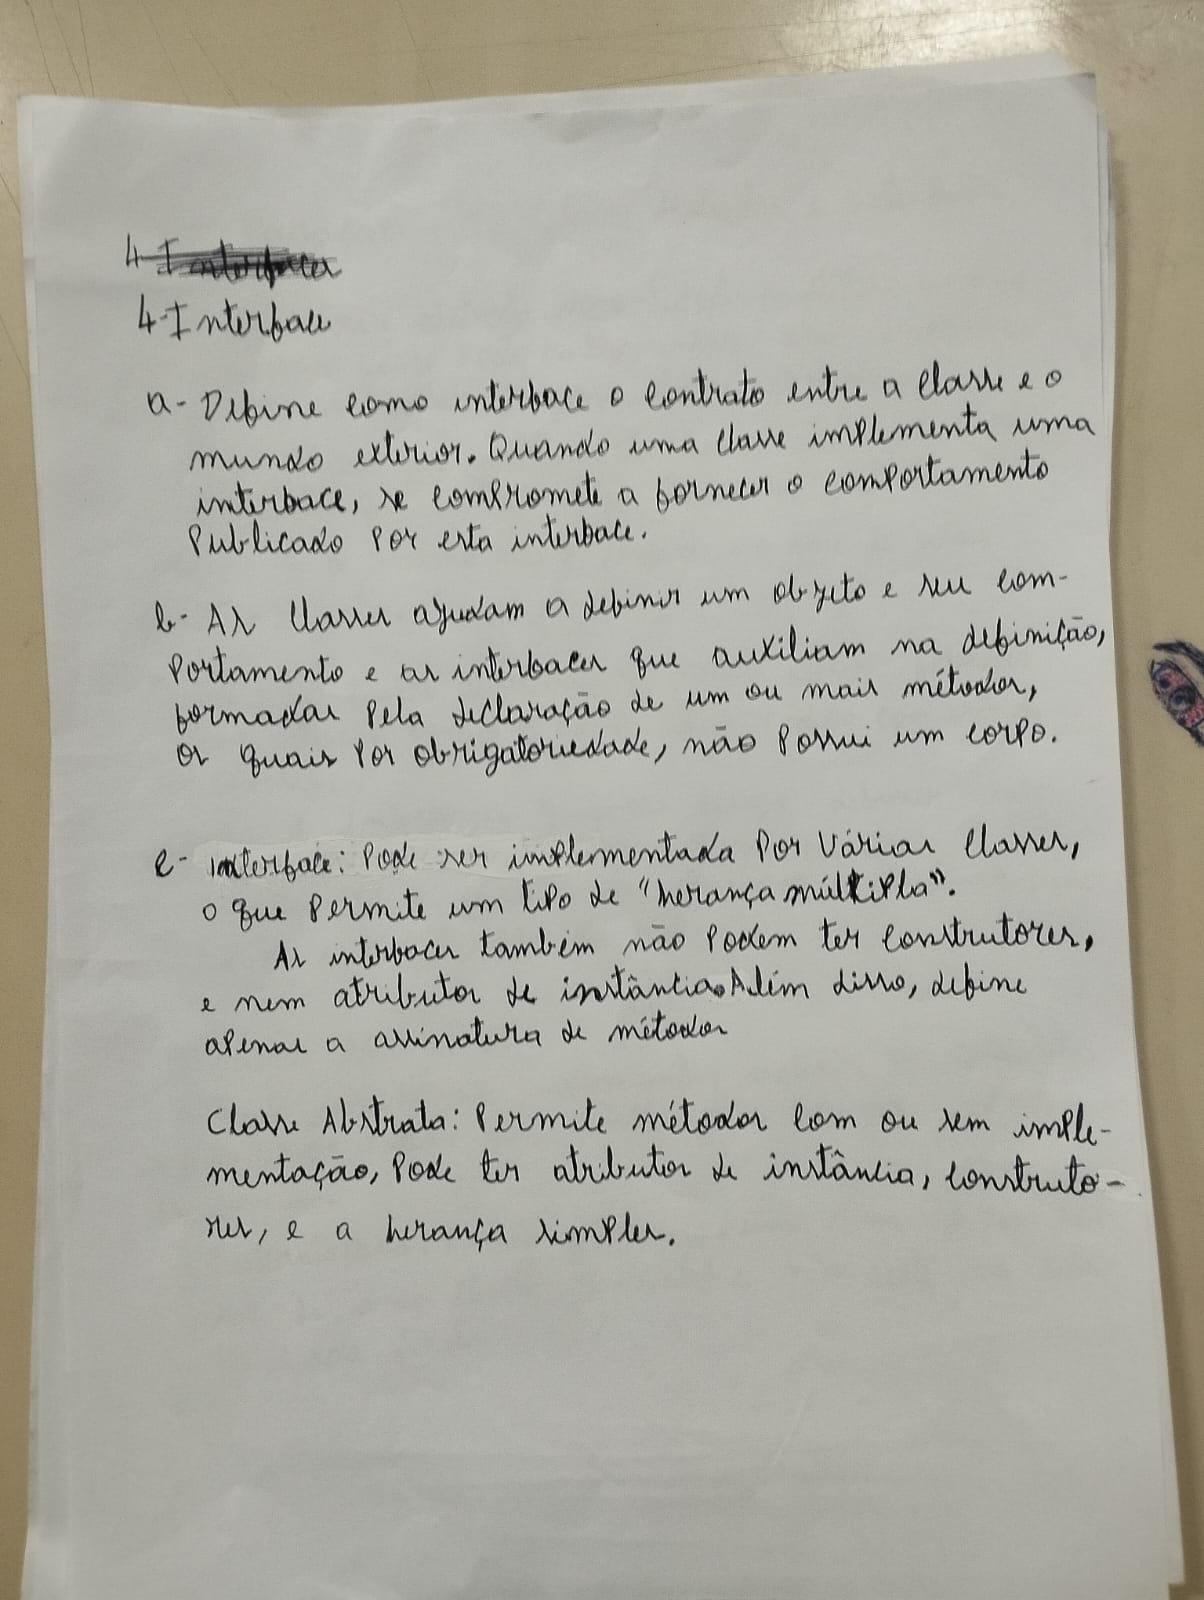 4-Interfaces
4-Interface
a- Define como interface o contrato entre a classe e o
mundo exterior. Quando uma classe implementa uma
interface, se compromete a fornecer o comportamento
publicado por esta interface.
b- As classes ajudam a definir um objeto e seu com-
portamento e as interfaces que auxiliam na definição,
formadas pela declaração de um ou mais métodos,
os quais por obrigatoriedade, não possui um corpo.
c- interface: Pode ser implementada por várias classes,
o que permite um tipo de "herança múltipla".
As interfaces também não podem ter construtores,
e nem atributos de instância. Além disso, define
apenas a assinatura de métodos
Classe Abstrata: Permite métodos com ou sem imple-
mentação, pode ter atributos de instância, construto-
res, e a herança simples.